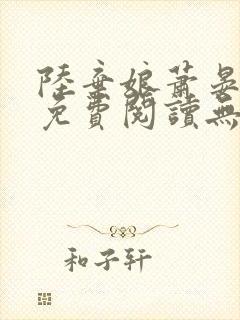 陸棄娘蕭晏
免費閱讀無
和子軒